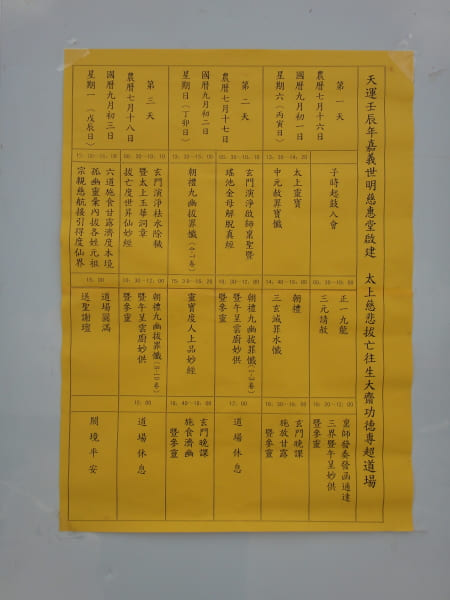 天運壬辰年嘉義世明慈惠堂啟建　太上慈悲拔亡往生大齋功德專超道場
第一天
農曆七月十六日
國曆九月初一日
星期六（丙寅日）
子時起鼓入會
正一九龍
三元請敕
10：30-12：00
皇師發奏發函通達
三界暨午呈妙供
暨參靈
13：30-14：20
太上靈寶
中元赦罪寶懺
14：40-16：00
朝禮
三玄滅罪水懺
16：30-18：00
玄門晚課
施放甘露
暨參靈
第二天
農曆七月十七日
國曆九月初二日
星期日（丁卯日）
玄門演淨啟師稟聖暨
瑤池金母解脫真經
朝禮九幽拔罪懺
暨午呈雲廚妙供
暨參靈
12：00
道場休息
13：30-15：00
朝禮九幽拔罪懺
靈寶度人上品妙經
16：40-18：00
玄門晚課
施食濟幽
暨參靈
第三天
農曆七月十八日
國曆九月初三日
星期一（戊辰日）
玄門演淨祛水除穢
暨太上玉華洞章
拔亡度世昇仙妙經
10：30-12：00
朝禮九幽拔罪懺
暨午呈雲廚妙供
暨參靈
12：00
道場休息
六道施食甘露濟度本境
孤幽靈彙內拔各姓元祖
宗親慈航接引得度仙界
15：00
道場圓滿
送聖謝壇
閤境平安